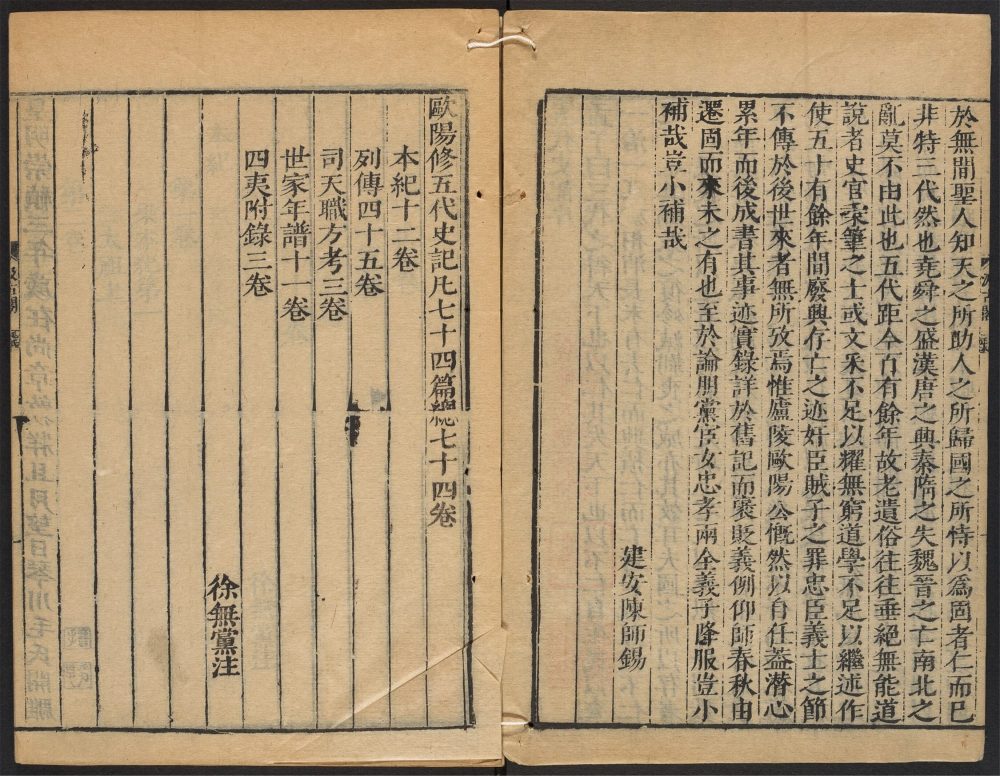 於無間聖人知天之所助人之所歸國之所恃以爲固者仁而已
非特三代然也堯舜之盛漢唐之興秦隋之失魏晉之亡南北之
亂莫不由此也五代距今百有餘年故老遺俗往往垂絕無能道
說者史官秉筆之士或文采不足以耀無窮道學不足以繼述作
使五十有餘年間廢興存亡之迹奸臣賊子之罪忠臣義士之節
不傳於後世來者無所攷焉惟廬陵歐陽公慨然以自任葢潛心
累年而後成書其事迹實錄詳於舊記而褒貶義例仰師春秋由
遷固而來未之有也至於論朋黨宦女忠孝兩全義子降服豈小
補哉豈小補哉
建安陳師錫
歐陽修五代史記凡七十四篇總七十四卷
本紀十二卷
列傳四十五卷
司天職方考三卷
世家年譜十一卷
四夷附錄三卷
徐無黨注